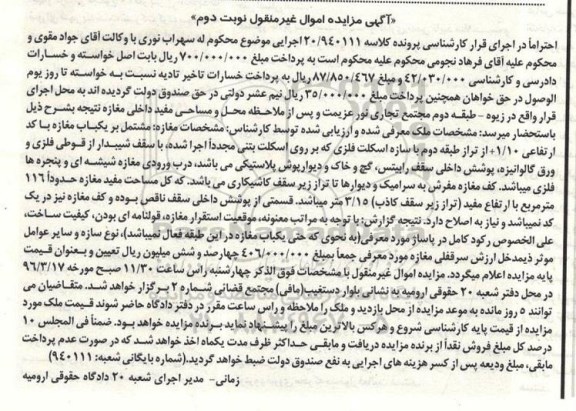 «آگهی مزایده اموال غیرمنقول نوبت دوم»
احتراماً در اجرای قرار کارشناسی پرونده کلاسه ۲۰/۹۴۰۱۱۱ اجرایی موضوع محکوم له سهراب نوری با وکالت آقای جواد مقوی و
محکوم علیه آقای فرهاد نجومی محکوم علیه محکوم است به پرداخت مبلغ ۷۰۰/۰۰۰/۰۰۰ ریال بابت اصل خواسته و خسارات
دادرسی و کارشناسی ۴۲/۰۳۰/۰۰۰ و مبلغ ۸۷/۸۵۰/۴۶۷ ریال به پرداخت خسارات تاخیر تادیه نسبت به خواسته تا روز یوم
الوصول در حق خواهان همچنین پرداخت مبلغ ۳۵/۰۰۰/۰۰۰ ریال نیم عشر دولتی در حق صندوق دولت گردیده اند به محل اجرای
قرار واقع در زیوه – طبقه دوم مجتمع تجاری نور عزیمت و پس از ملاحظه محل و مساحی مفید داخلی مغازه نتیجه بشرح ذیل
باستحضار میرسد: مشخصات ملک معرفی شده و ارزیابی شده توسط کارشناس: مشخصات مغازه: مشتمل بر یکباب مغازه با کد
ارتفاعی ۰/۱۰+ از تراز طبقه دوم با سازه اسکلت فلزی که بر روی اسکلت بتنی مجدداً اجرا شده، با سقف شیبدار از قوطی فلزی و
ورق گالوانیزه، پوشش داخلی سقف رابیتس، گچ و خاک و دیوارپوش پلاستیکی می باشد، درب ورودی مغازه شیشه ای و پنجره ها
فلزی میباشد. کف مغازه مفرش به سرامیک و دیوارها تا تراز زیر سقف کاشیکاری می باشد. که کل مساحت مفید مغازه حدوداً ۱۱۶
مترمربع با ارتفاع مفید (تراز زیر سقف کاذب) ۳/۱۵ متر میباشد. قسمتی از پوشش داخلی سقف ناقص بوده و کف مغازه نیز در یک
کد نمیباشد و نیاز به اصلاح دارد. نتیجه گزارش: با توجه به مراتب معنونه، موقعیت استقرار مغازه، قولنامه ای بودن، کیفیت ساخت،
علی الخصوص رکود کامل در پاساژ مورد معرفی (به نحوی که حتی یکباب مغازه در این طبقه فعال نمیباشد)، نوع سازه و سایر عوامل
موثر ذیمدخل ارزش سرقفلی مغازه مورد معرفی جمعاً بمبلغ ۴۰۶/۰۰۰/۰۰۰ چهارصد و شش میلیون ریال تعیین و بعنوان قیمت
پایه مزایده اعلام میگردد. مزایده اموال غیرمنقول با مشخصات فوق الذکر چهارشنبه راس ساعت ۱۱/۳۰ صبح مورخه ۹۶/۳/۱۷
در محل دفتر شعبه ۲۰ حقوقی ارومیه به نشانی بلوار دستغیب (مافی) مجتمع قضائی شماره ۲ برگزار خواهد شد. متقاضیان می
توانند ۵ روز مانده به موعد مزایده از محل بازدید و ملک را ملاحظه و راس ساعت مقرر در دفتر دادگاه حاضر شوند قیمت ملک مورد
مزایده از قیمت پایه کارشناسی شروع و هرکس بالاترین مبلغ را پیشنهاد نماید برنده مزایده خواهد بود. ضمناً فی المجلس ۱۰
درصد کل مبلغ فروش نقداً از برنده مزایده دریافت و مابقی حداکثر ظرف مدت یکماه اخذ خواهد شد که در صورت عدم پرداخت
مابقی، مبلغ ودیعه پس از کسر هزینه های اجرایی به نفع صندوق دولت ضبط خواهد گردید. (شماره بایگانی شعبه: ۹۴۰۱۱۱)
زمانی- مدیر اجرای شعبه ۲۰ دادگاه حقوقی ارومیه